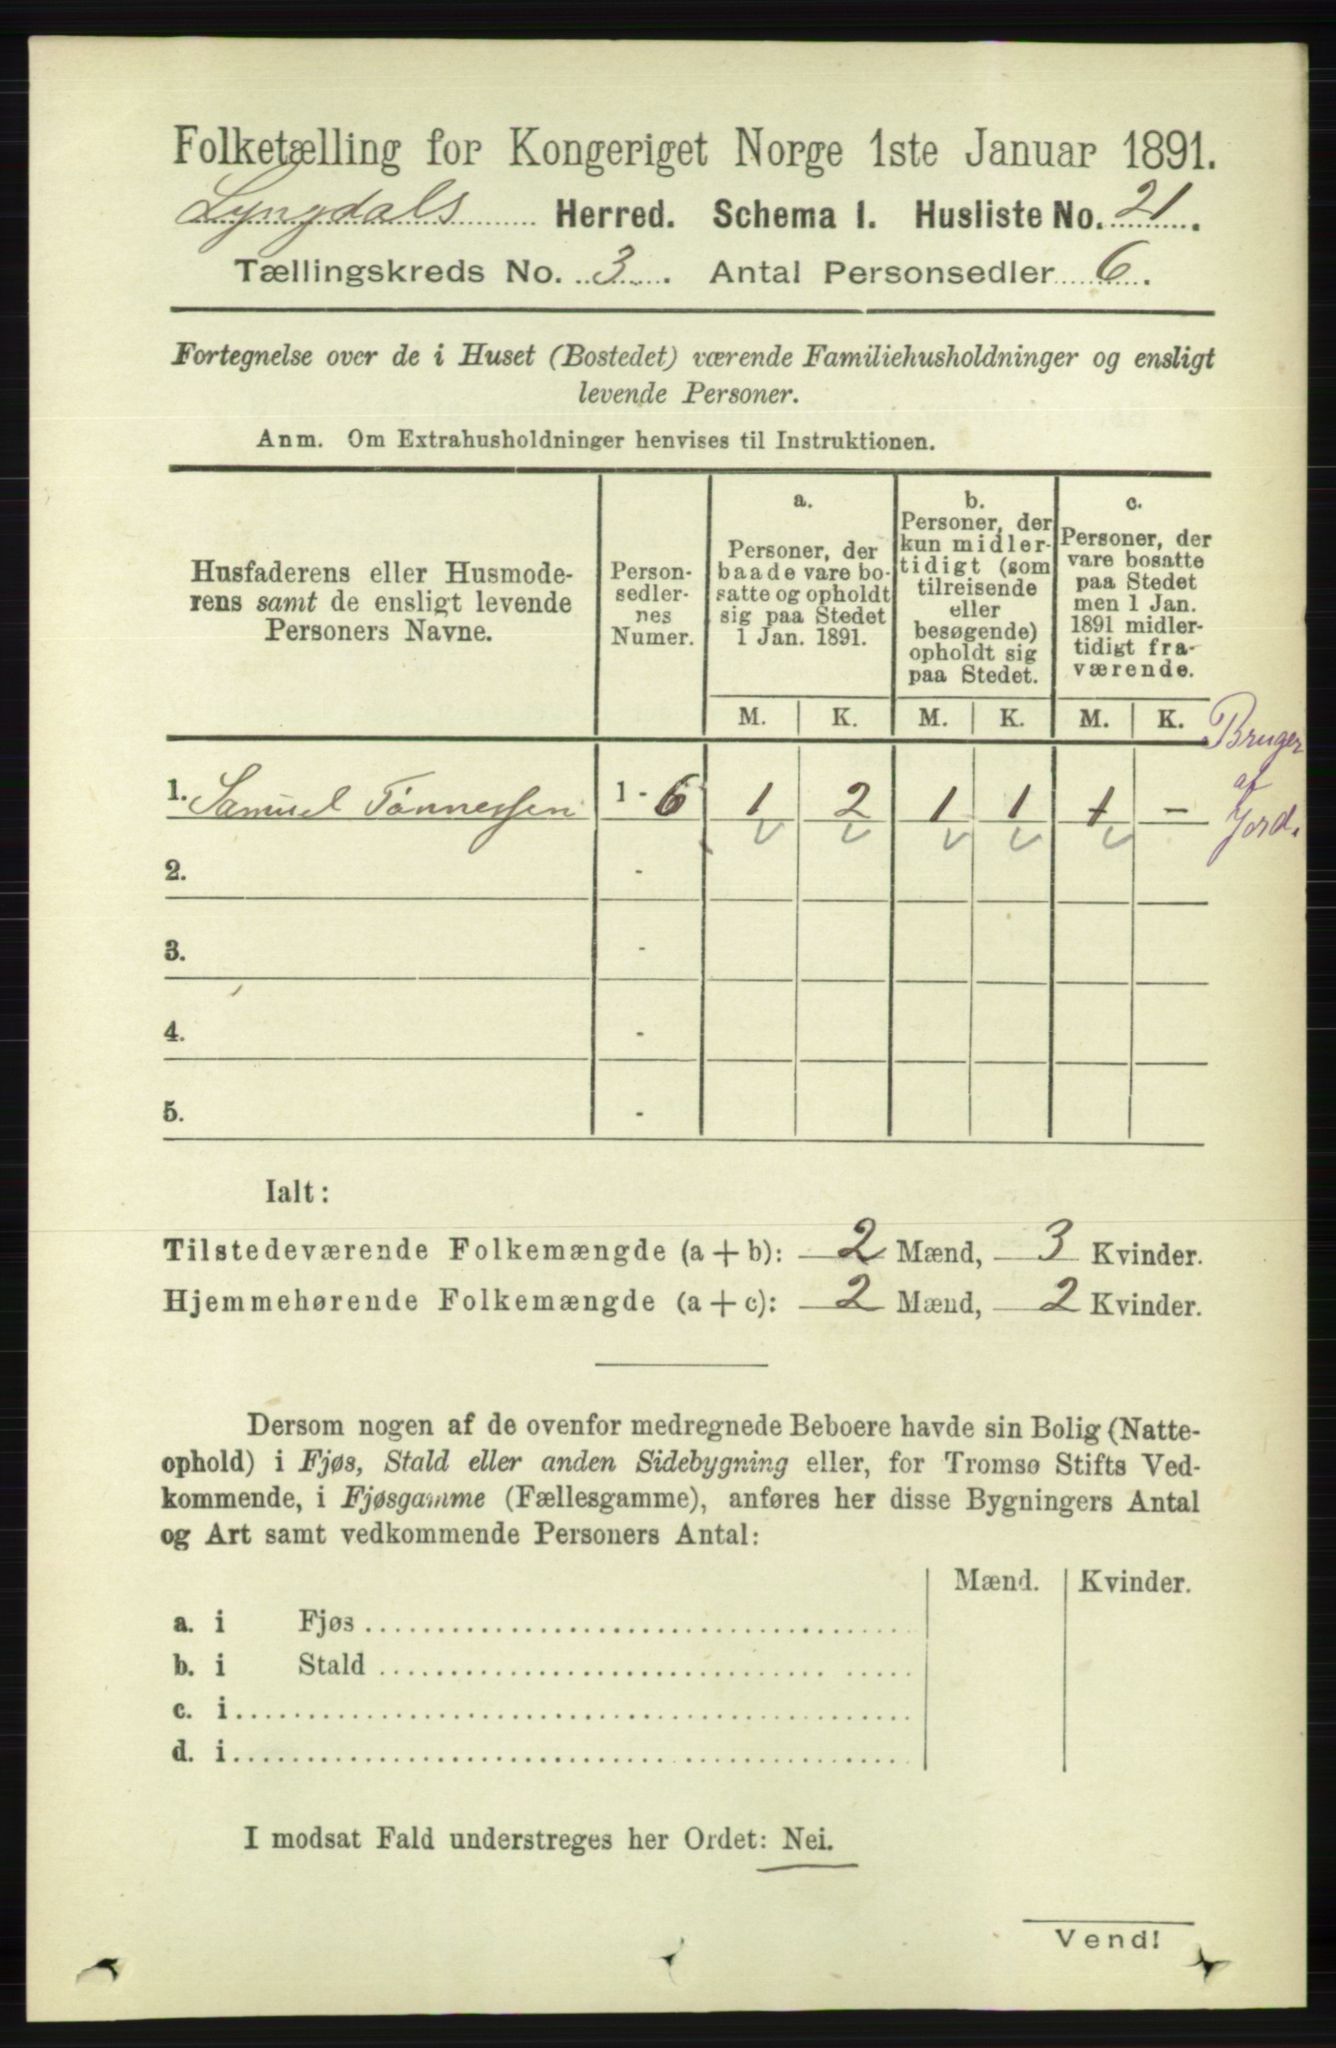 Folketælling for Kongeriget Norge 1ste Januar 1891.
Lyngdals Herred. Schema I. Husliste No. 21.
Tællingskreds No. 3. Antal Personsedler 6.
Fortegnelse over de i Huset (Bostedet) værende Familiehusholdninger og ensligt
levende Personer.
Anm. Om Extrahusholdninger henvises til Instruktionen.
Husfaderens eller Husmode-
rens samt de ensligt levende
Personers Navne.
Person-
sedler-
nes
Numer.
a.
Personer, der
baade vare bo-
satte og opholdt
sig paa Stedet
1 Jan. 1891.
b.
Personer, der
kun midler-
tidigt (som
tilreisende
eller
besøgende)
opholdt sig
paa Stedet.
c.
Personer, der
vare bosatte
paa Stedet
men 1 Jan.
1891 midler-
tidigt fra-
værende.
M. K. M. K. M. K.
Bruger
af
Jord.
1. Samuel Tønnessen 1 - 6 1 2 1 1 1 -
2. -
3. -
4. -
5. -
Ialt:
Tilstedeværende Folkemængde (a + b): 2 Mænd, 3 Kvinder.
Hjemmehørende Folkemængde (a + c): 2 Mænd, 2 Kvinder.
Dersom nogen af de ovenfor medregnede Beboere havde sin Bolig (Natte-
ophold) i Fjøs, Stald eller anden Sidebygning eller, for Tromsø Stifts Ved-
kommende, i Fjøsgamme (Fællesgamme), anføres her disse Bygningers Antal
og Art samt vedkommende Personers Antal:
Mænd. Kvinder.
a. i Fjøs
b. i Stald
c. i
d. i
I modsat Fald understreges her Ordet: Nei.
Vend!